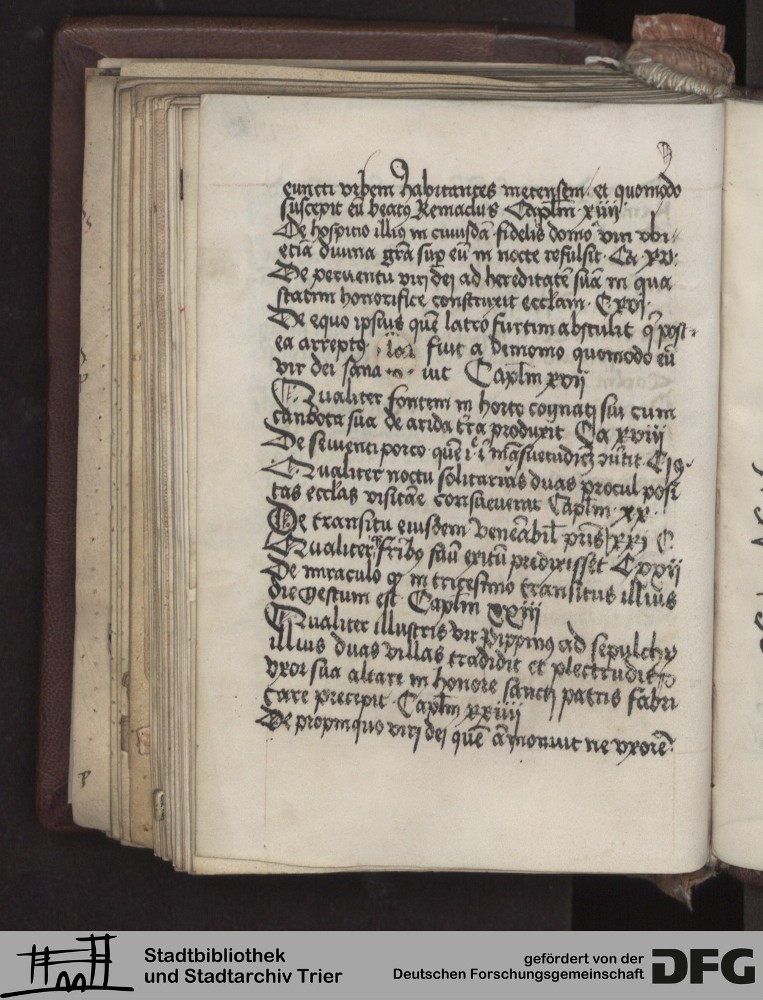 cuncti vrbem habitantes metensem · et quomodo
suscepit eū beatꝯ Remaclus Caplm̄ · xiiii
De hospitio illiꝯ in cuiusdā fidelis domo viri vbi
etiā diuina grā sup eū in nocte refulsit · Ca · xv ·
De peruentu viri dei ad hereditatē suā in qua
statim honorifice construxit ecclam · C xvi ·
De equo ipsius quē latro furtim abstulit post
ea arreptꝯ fuit a demonio quomodo eū
vir dei sana uit Caplm̄ xvii
Qualiter fontem in horto cognati sui cum
cambota sua de arida tr̄ra produxit Ca xviii
De seuienti porco quē
Qualiter noctu solitarius duas procul posi
tas ecclas visitare consueuerat Caplm̄ · xx ·
De transitu eiusdem venerabil pris xxi C
Qualiter fribꝯ suū exitū predixisset C xxii
De miraculo qꝫ in tricesimo transitus illius
die gestum est · Caplm̄ xxiii
Qualiter illustris vir Pippinꝯ ad sepulchrū
illius duas villas tradidit et plectrudis
vxor sua altare in honore sancti patris fabri
care precepit · Caplm̄ xxiiii
De propinquo viri dei quē āmonuit ne vxorē
Stadtbibliothek
und Stadtarchiv Trier
gefördert von der
Deutschen Forschungsgemeinschaft
DFG